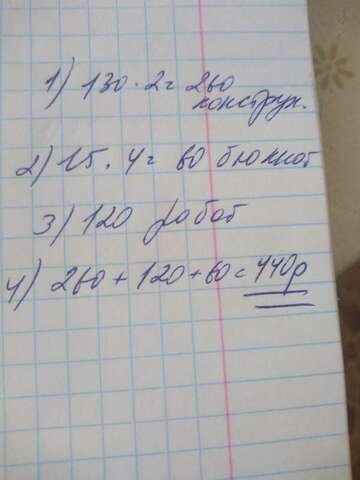 1) 130 · 2 = 260
конструк.
2) 15 · 4 = 60 блокнот
3) 120 робот
4) 260 + 120 + 60 = 440р